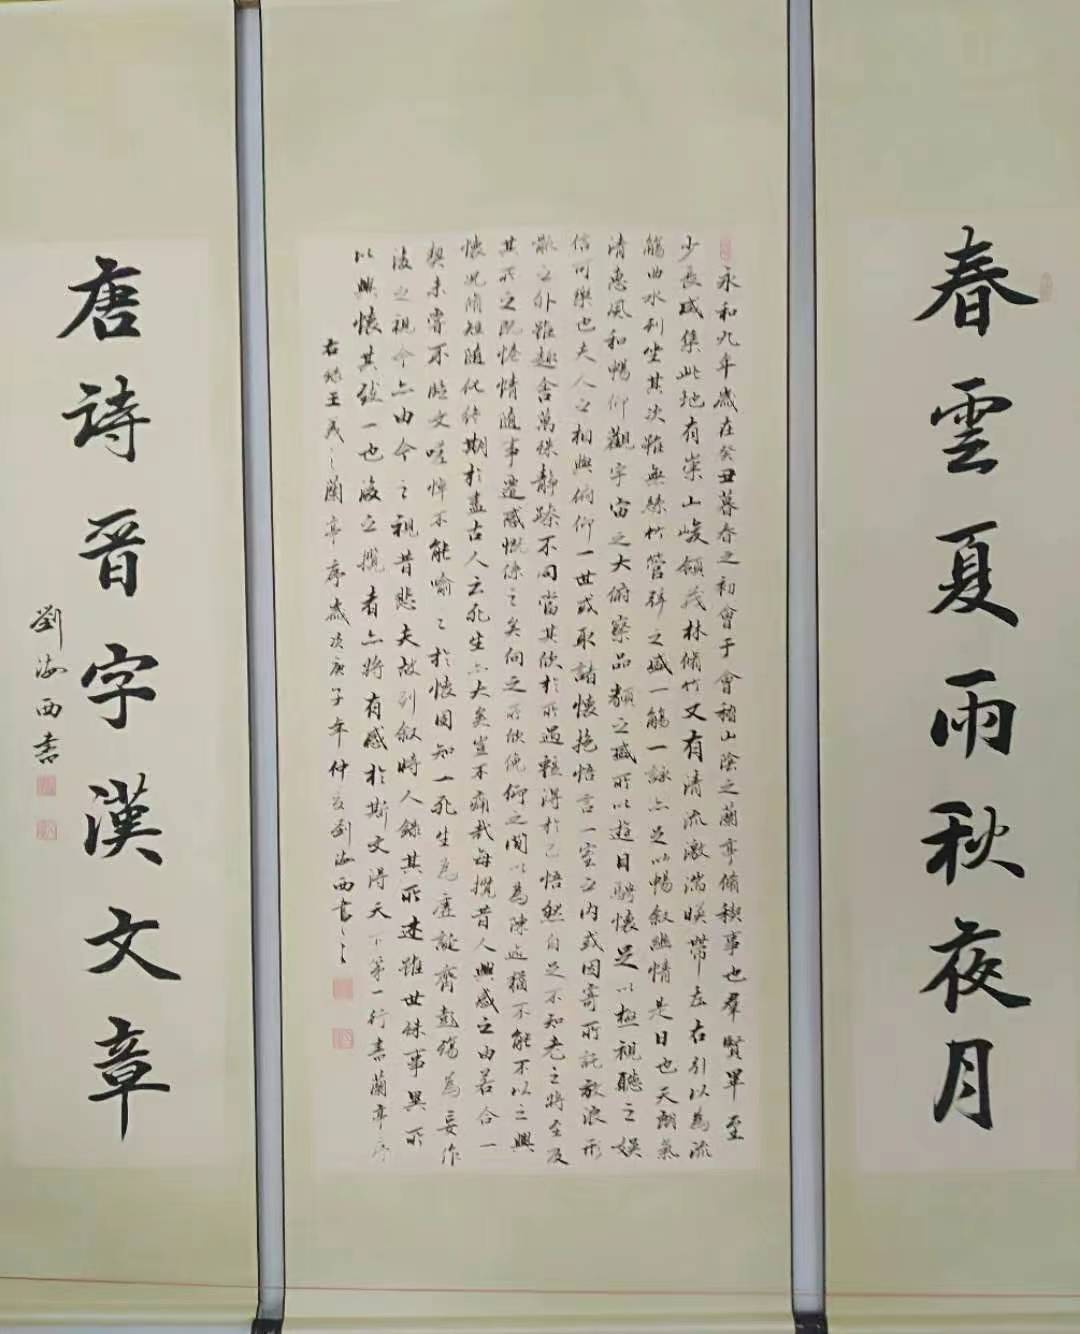 春雲夏雨秋夜月
永和九年歲在癸丑暮春之初會于會稽山陰之蘭亭脩稧事也羣賢畢至
少長咸集此地有崇山峻領茂林脩竹又有清流激湍暎帶左右引以為流
觴曲水列坐其次雖無絲竹管弦之盛一觴一詠亦足以暢敘幽情是日也天朗氣
清惠風和暢仰觀宇宙之大俯察品類之盛所以遊目騁懷足以極視聽之娛
信可樂也夫人之相與俯仰一世或取諸懷抱悟言一室之內或因寄所託放浪形
骸之外雖趣舍萬殊靜躁不同當其欣於所遇暫得於己快然自足不知老之將至及
其所之既惓情隨事遷感慨係之矣向之所欣俛仰之間以為陳迹猶不能不以之興
懷況脩短隨化終期於盡古人云死生亦大矣豈不痛哉每攬昔人興感之由若合一
契未嘗不臨文嗟悼不能喻之於懷固知一死生為虛誕齊彭殤為妄作
後之視今亦由今之視昔悲夫故列敘時人錄其所述雖世殊事異所
以興懷其致一也後之攬者亦將有感於斯文得天下第一行書蘭亭序
右錄王羲之蘭亭序歲次庚子年仲夏劉海西書
唐詩晉字漢文章
劉海西書